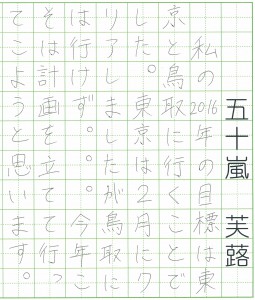 五十嵐 芙蕗
私の2016年の目標は東
京と鳥取に行くことで
した。東京は2月にク
リアしましたが鳥取に
は行けず。。今年こ
そは計画を立て、行っ
てこようと思います。